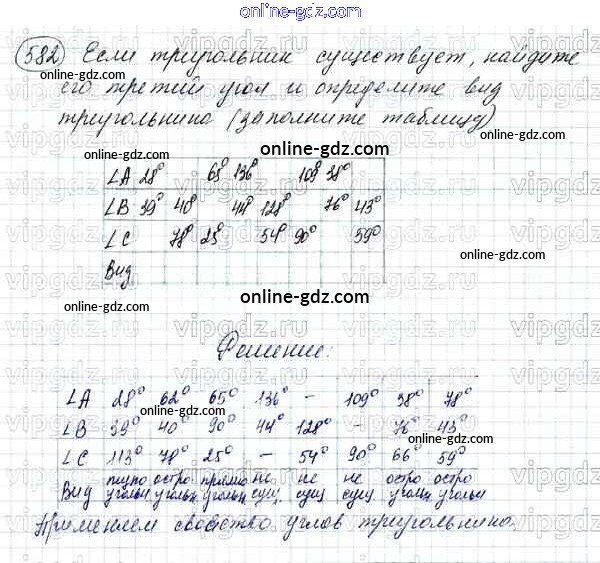 online-gdz.com
582 Если треугольник существует, найдите
его третий угол и определите вид
треугольника (заполните таблицу)
online-gdz.com
online-gdz.com
online-gdz.com
∠A 28° 65° 136° 109° 38°
∠B 39° 40° 44° 128° 76° 43°
∠C 78° 25° 54° 90° 59°
Вид
online-gdz.com
online-gdz.com
online-gdz.com
Решение:
∠A 28° 62° 65° 136° – 109° 38° 78°
online-gdz.com
online-gdz.com
∠B 39° 40° 90° 44° 128° – 76° 43°
∠C 113° 78° 25° – 54° 90° 66° 59°
Вид тупо остро прямо не не не остро остро
угольн угольн угольн сущ. сущ сущ угольн угольн
online-gdz.com
Применяем свойство углов треугольника.
vipgdz.ru